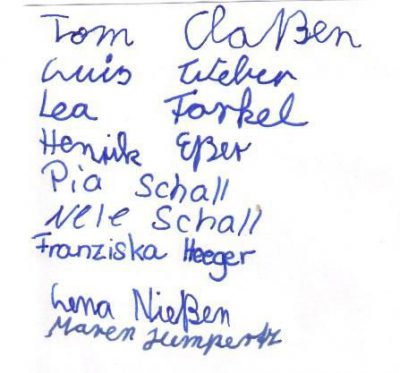 Tom Claßen
Luis Weber
Lea Farkel
Henrik Eßer
Pia Schall
Nele Schall
Franziska Heeger
Lena Nießen
Maren Jumpertz